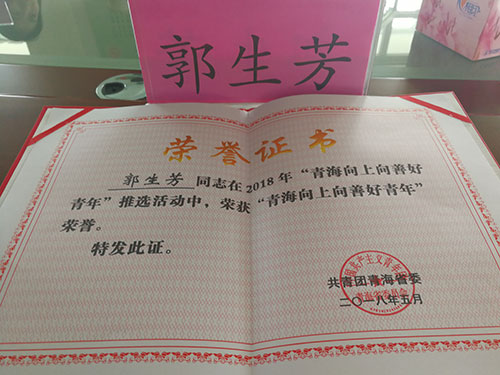 郭生芳
荣誉证书
郭生芳同志在2018年“青海向上向善好
青年”推选活动中，荣获“青海向上向善好青年”
荣誉。
特发此证。
共青团青海省委
二〇一八年五月